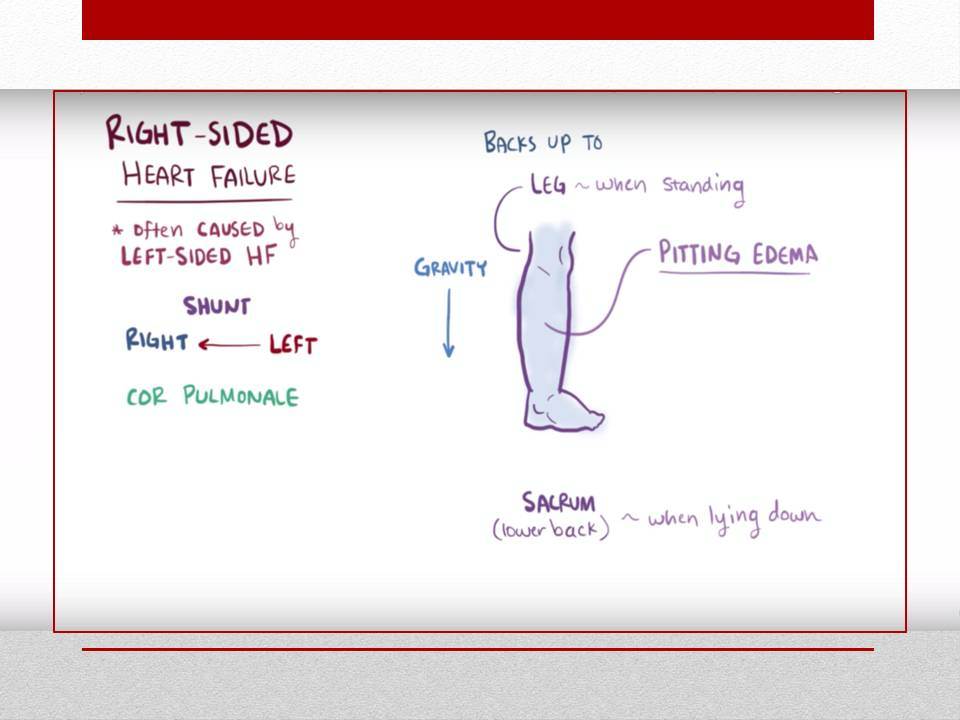 RIGHT-SIDED
HEART FAILURE
* Often CAUSED by
LEFT-SIDED HF
SHUNT
RIGHT ← LEFT
COR PULMONALE
BACKS UP TO
LEG ~ when standing
GRAVITY
PITTING EDEMA
SACRUM
(lower back) ~ when lying down